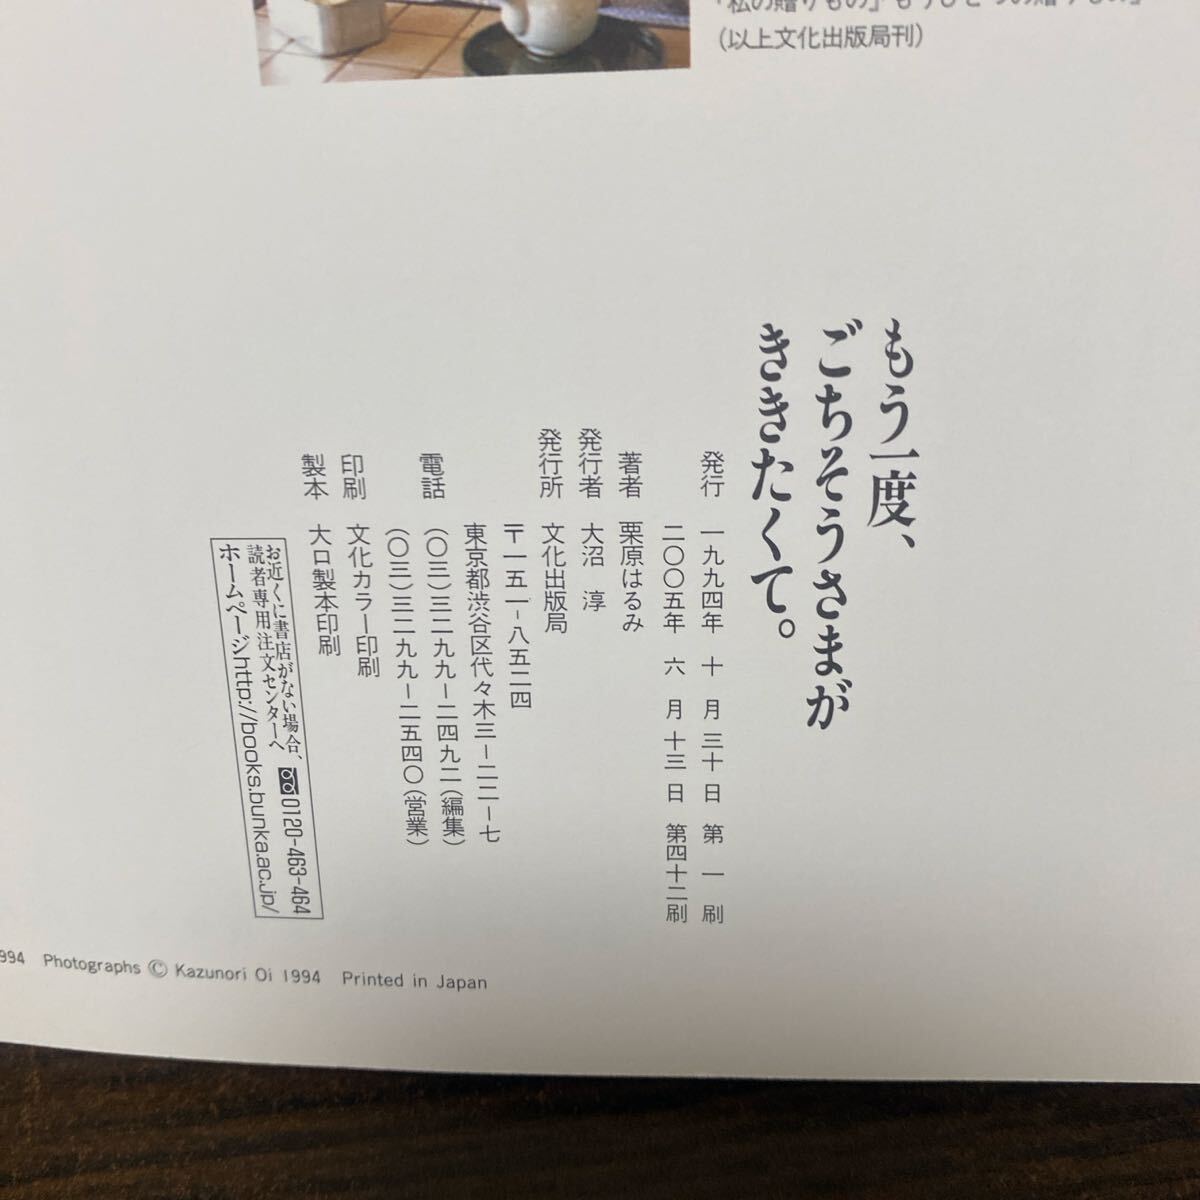 （以上文化出版局刊）
もう一度、
ごちそうさまが
ききたくて。
発行 一九九四年 十月三十日 第一刷
二〇〇五年 六月十三日 第四十二刷
著者 栗原はるみ
発行者 大沼 淳
発行所 文化出版局
〒一五一-八五二四
東京都渋谷区代々木三-二二-七
電話 （〇三）三二九九-二四九二（編集）
（〇三）三二九九-二五四〇（営業）
印刷 文化カラー印刷
製本 大口製本印刷
お近くに書店がない場合、
読者専用注文センターへ 0120-463-464
ホームページhttp://books.bunka.ac.jp/
994 Photographs © Kazunori Oi 1994 Printed in Japan